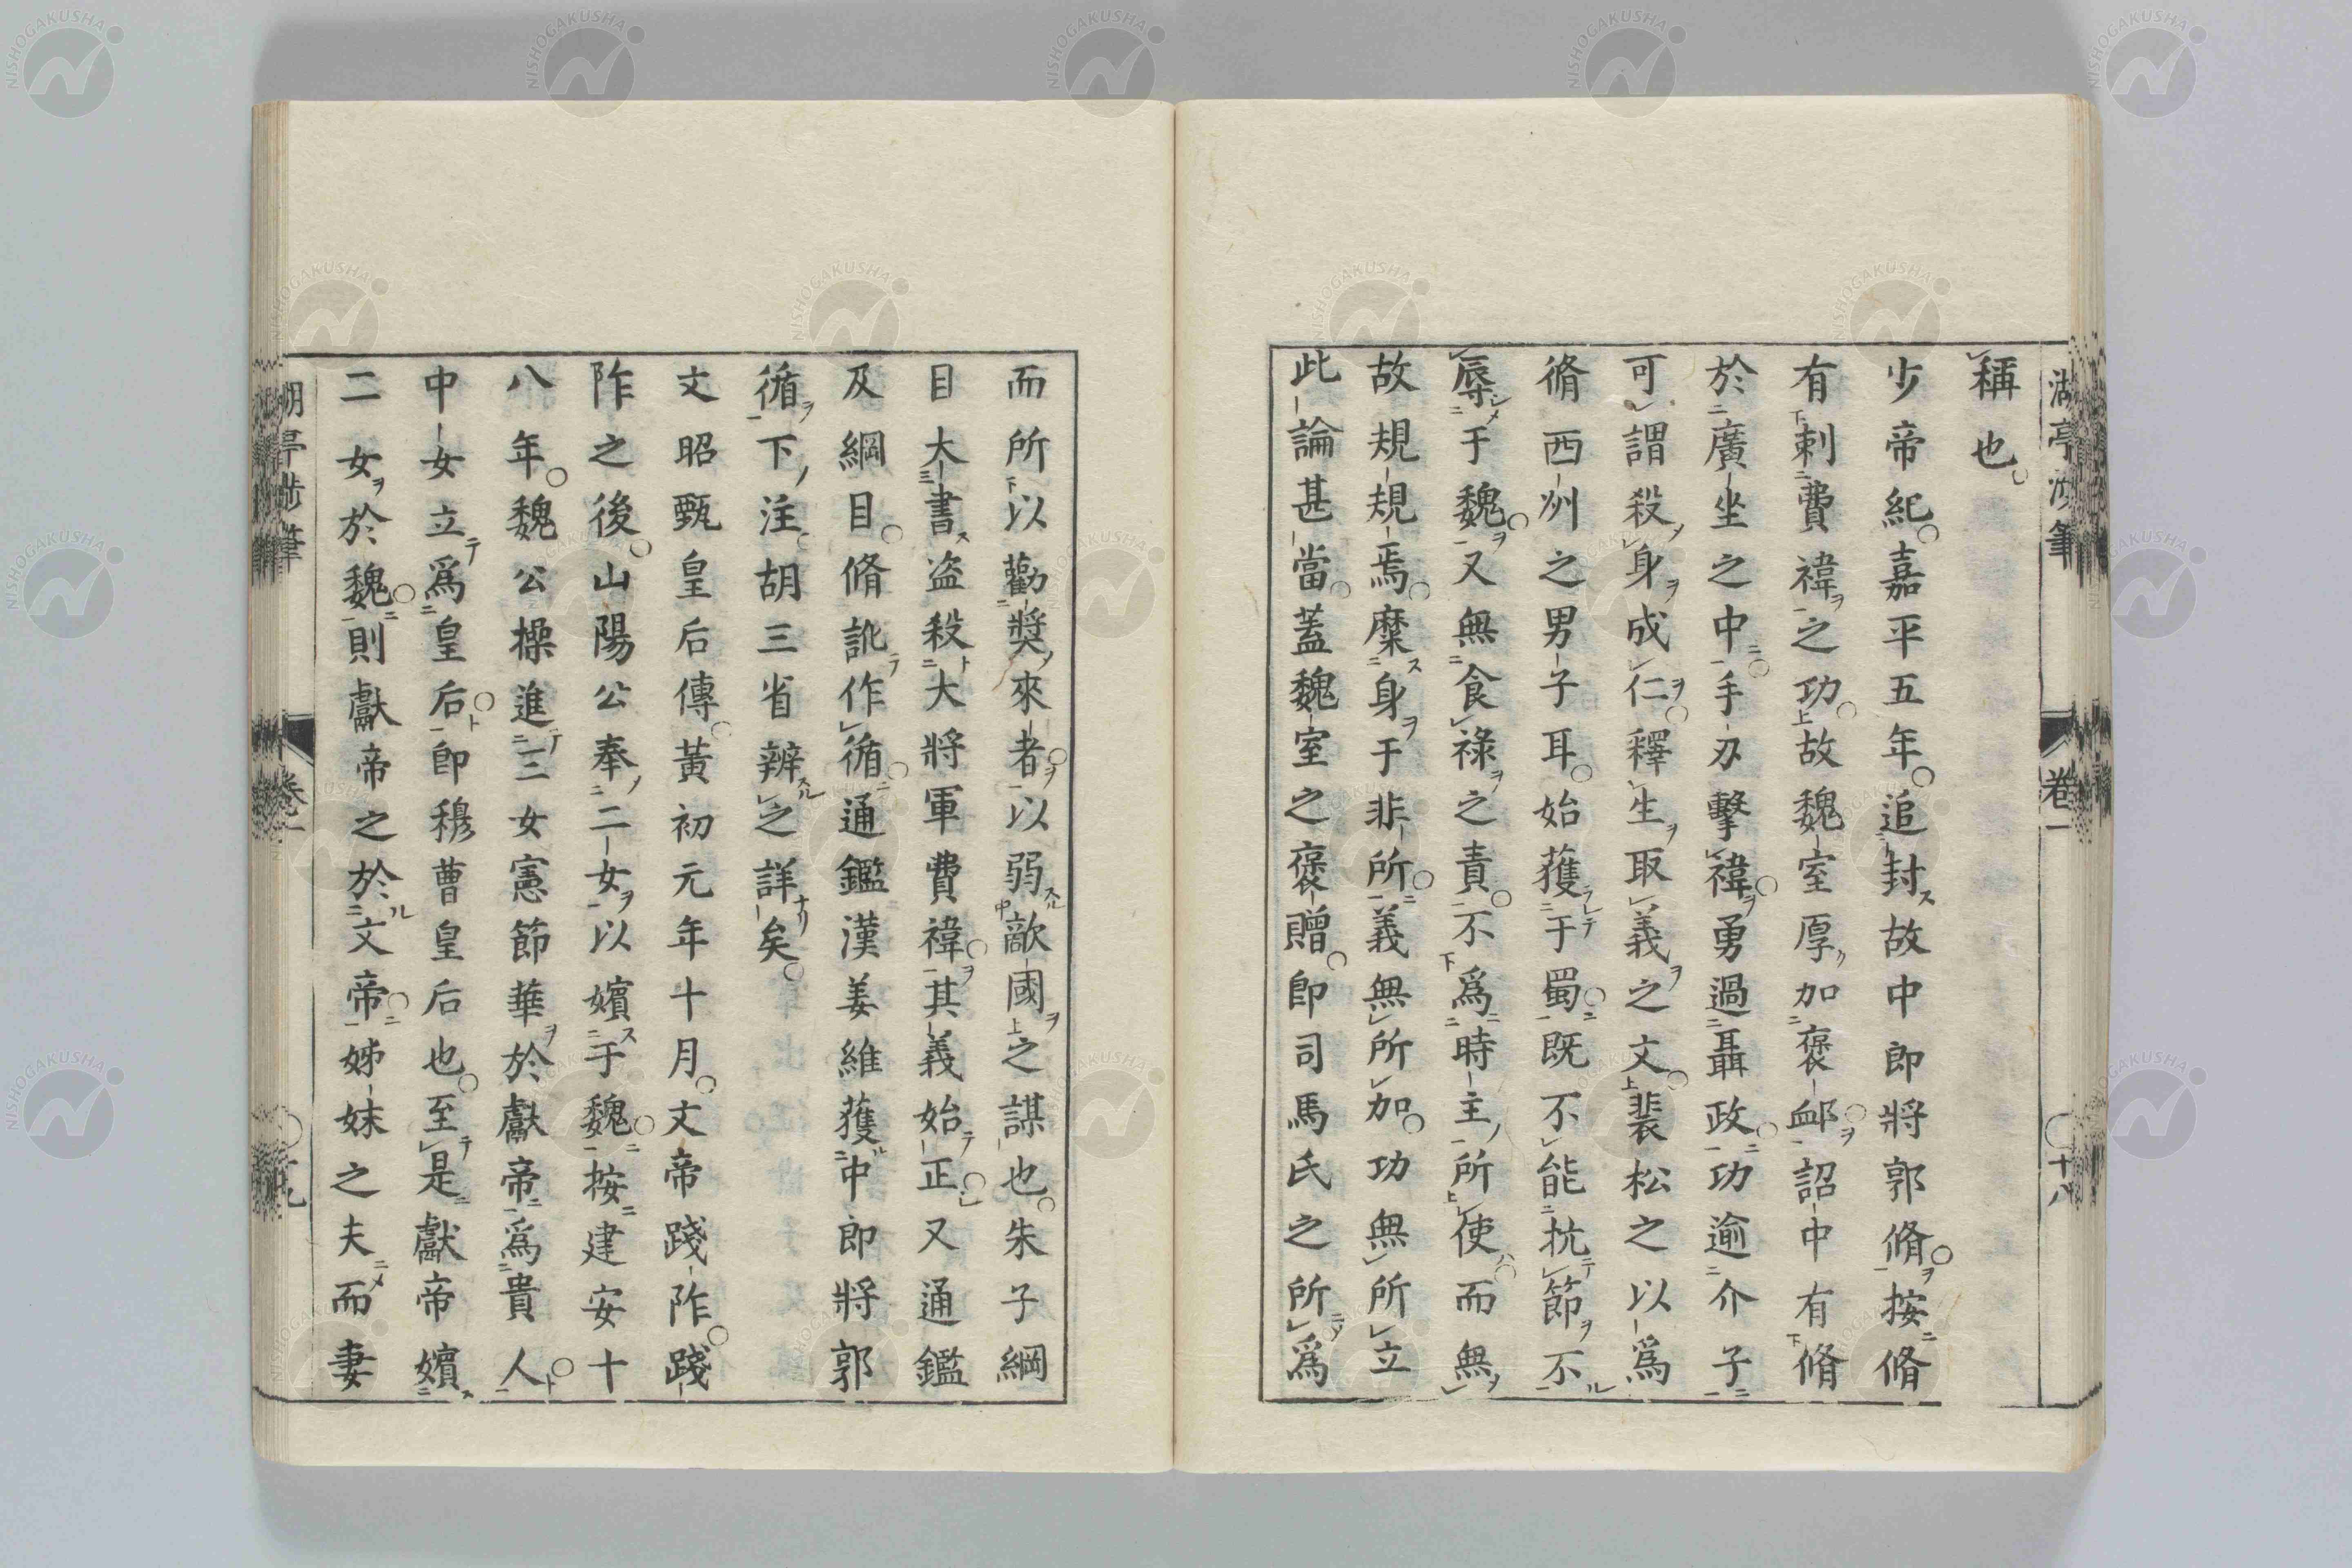 稱也
少帝紀嘉平五年追封故中郎將郭脩按脩
有刺費禕之功故魏室厚加褒卹詔中有脩
於廣坐之中手刃擊禕勇過聶政功逾介子
可謂殺身成仁釋生取義之文裴松之以爲
脩西州之男子耳始獲于蜀既不能抗節不
辱于魏又無食祿之責不爲時主所使而無
故規規焉糜身于非所義無所加功無所立
此論甚當蓋魏室之褒贈即司馬氏之所爲
卷一
十八
而所以勸奬來者以弱敵國之謀也朱子綱
目大書盗殺大將軍費禕其義始正又通鑑
及綱目脩訛作循通鑑漢姜維獲中郎將郭
循下注胡三省辨之詳矣
文昭甄皇后傳黃初元年十月文帝踐阼踐
阼之後山陽公奉二女以嬪于魏按建安十
八年魏公操進三女憲節華於獻帝爲貴人
中女立爲皇后即穆曹皇后也至是獻帝嬪
二女於魏則獻帝之於文帝姊妹之夫而妻
NISHOGAKUSHA